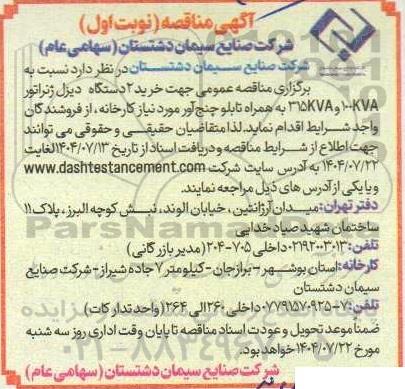 آگهی مناقصه (نوبت اول)
شرکت صنایع سیمان دشتستان (سهامی عام)
شرکت صنایع سیمان دشتستان در نظر دارد نسبت به
برگزاری مناقصه عمومی جهت خرید ۲ دستگاه دیزل ژنراتور
۱۰۰KVA و ۳۱۵KVA به همراه تابلو چنج‌آور مورد نیاز کارخانه، از فروشندگان
واجد شرایط اقدام نماید. لذا متقاضیان حقیقی و حقوقی می توانند
جهت اطلاع از شرایط مناقصه و دریافت اسناد از تاریخ ۱۴۰۴/۰۷/۱۳ لغایت
۱۴۰۴/۰۷/۲۲ به آدرس سایت شرکت www.dashtestancement.com
و یا یکی از آدرس های ذیل مراجعه نمایند.
دفتر تهران: میدان آرژانتین، خیابان الوند، نبش کوچه البرز، پلاک ۱۱
ساختمان شهید صیاد خدایی
تلفن: ۰۲۱۹۲۰۰۳۰۱۳ داخلی ۷۰۵-۲۰۴ (مدیر بازرگانی)
کارخانه: استان بوشهر - برازجان - کیلومتر ۷ جاده شیراز - شرکت صنایع
سیمان دشتستان
تلفن: ۷-۰۷۷۹۱۵۷۰۹۲۵ داخلی ۲۶۰ الی ۲۶۴ (واحد تدارکات)
ضمنا موعد تحویل و عودت اسناد مناقصه تا پایان وقت اداری روز سه شنبه
مورخ ۱۴۰۴/۰۷/۲۲ خواهد بود.
شرکت صنایع سیمان دشتستان (سهامی عام)